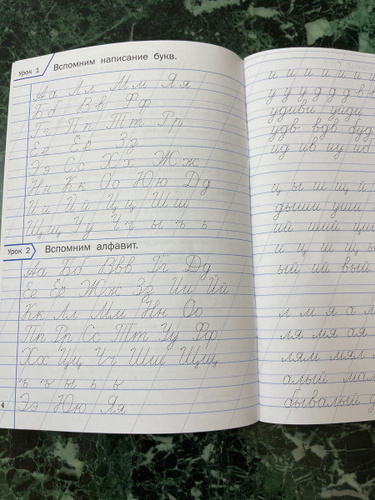 Урок 1 Вспомним написание букв.
Аа Лл Мм Яя
Бб Вв Фф
Гг Пп Тт Рр
Ее Ёё Зз
Ээ Сс Хх Жж
Нн Кк Оо Юю Дд
Ии Йй Цц Шш
Щщ Уу Чч ъ ы ь
Урок 2 Вспомним алфавит.
Аа Бб Ввв Гг Дд
Ее Ёё Жж Зз Ии Йй
Кк Лл Мм Нн Оо
Пп Рр Сс Тт Уу Фф
Хх Цц Чч Шш Щщ
ъ ы ь
Ээ Юю Яя
4
и и и и и и
у у у д д д в
удиви груди
удв вдв буд
ид ив иу
ц ы ш щ й
дыши уши
ий ший
и ц ш щ
ый ий вый
л м я а
ля мя ая
лям мял
алый
бывалый